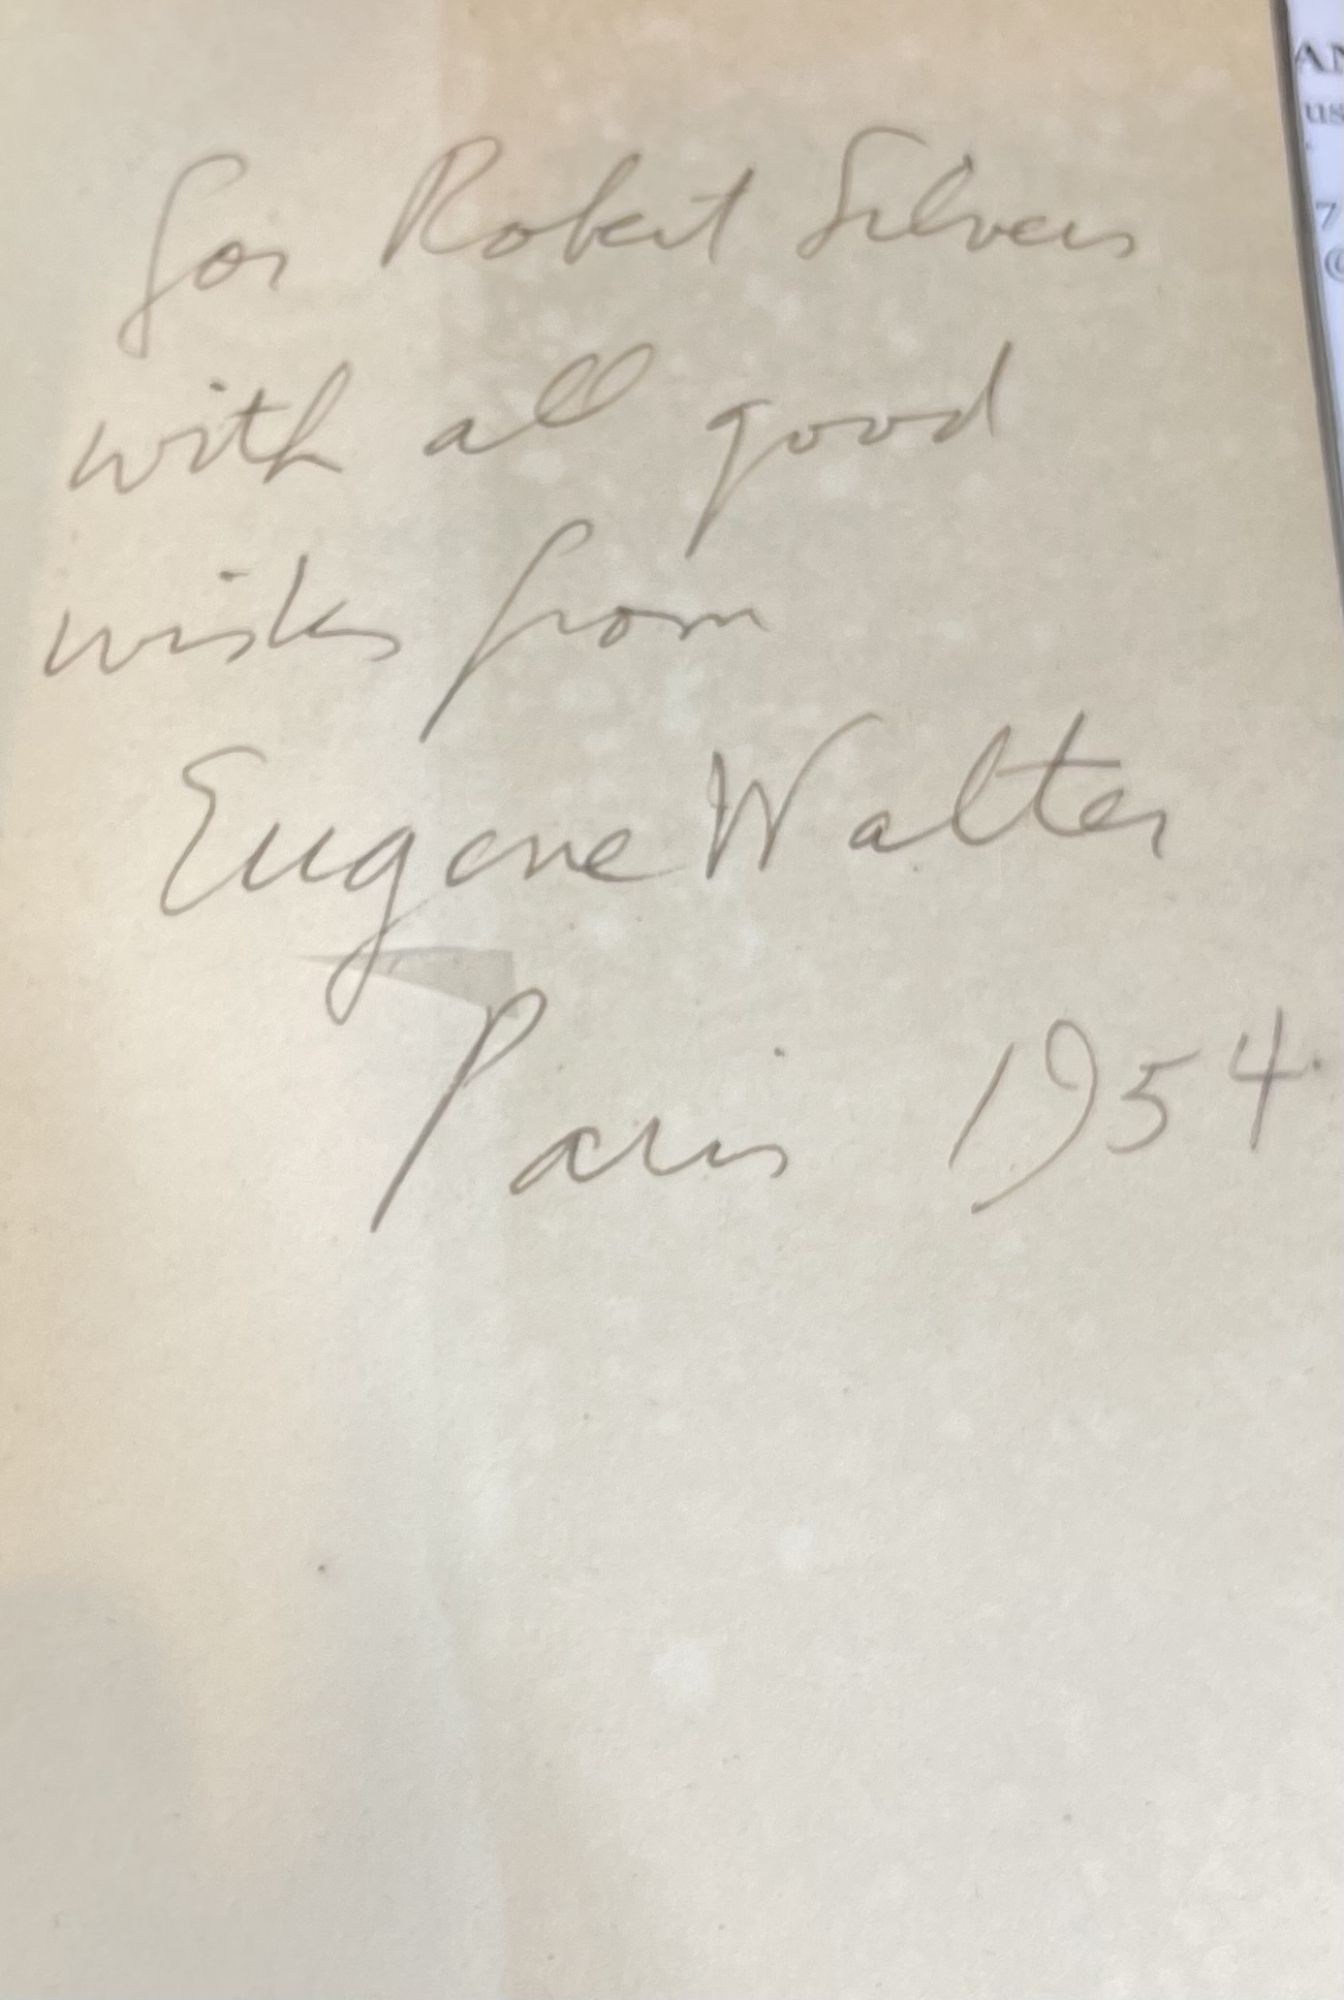 for Robert Silvers
with all good
wishes from
Eugene Walter
Paris 1954.
AN
us
7
@